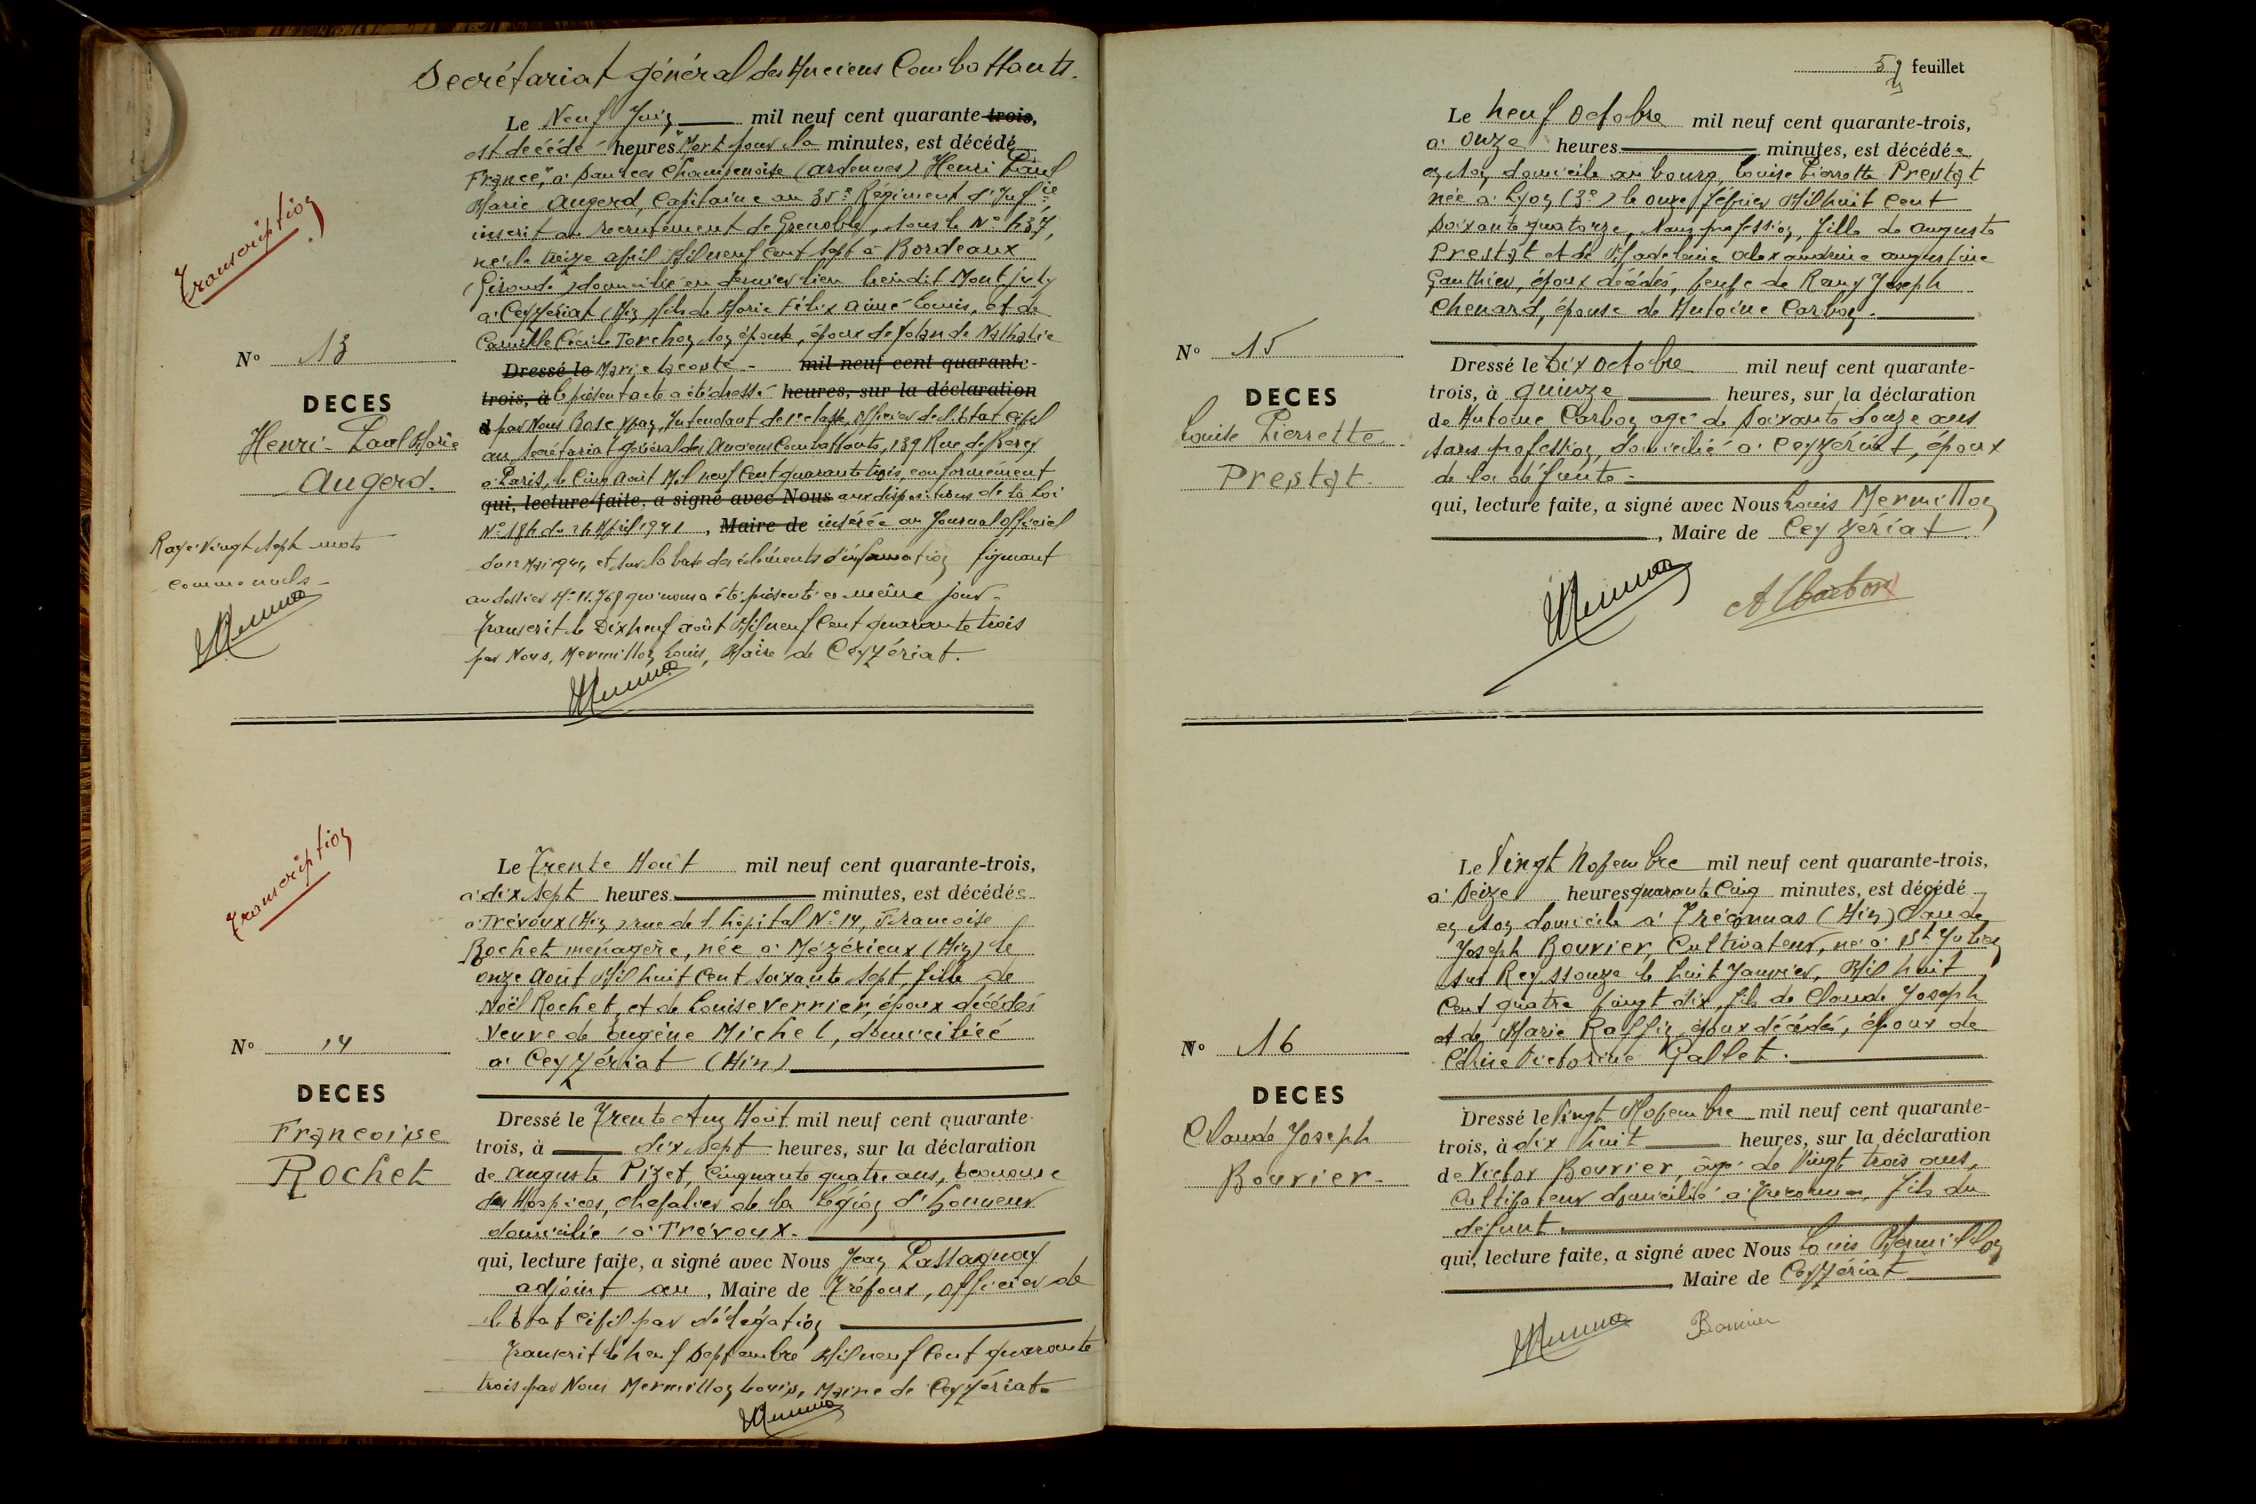 Secrétariat général des Anciens Combattants.
Le Neuf Juin mil neuf cent quarante trois,
est décédé heures "Mort pour la minutes, est décédé
France", à Saulces Champenoise (Ardennes) Henri Paul
Marie Augerd, Capitaine au 35e Régiment d'Infie
inscrit au recrutement de Grenoble, sous le No 437,
né le treize avril Mil neuf cent sept à Bordeaux
(Gironde) domicilié en dernier lieu lieudit Mont July
à Ceyzériat (Ain) fils de Marie Félix Aimé Louis, et de
Camille Cécile Torchon son épouse, époux de Yolande Nathalie
Dressé le Marie Lacoste - mil neuf cent quarante-
trois, à le présent acte a été dressé heures, sur la déclaration
d par Nous Intendant de 1e classe, Officier de l'état civil
au Secrétariat général des Anciens Combattants, 139 Rue de Bercy
à Paris, le Cinq Août Mil neuf cent quarante trois, conformément
qui, lecture faite, a signé avec Nous aux dispositions de la loi
No 184 du 24 Avril 1941, Maire de insérée au Journal officiel
du Mai et sur la base des éléments d'information figurant
au dossier No 11.768 qui nous a été présenté ce même jour -
Transcrit le Dix neuf août Mil neuf cent quarante trois
par Nous, Mermillon Louis, Maire de Ceyzériat.
Transcription
No 13
DECES
Henri-Paul Marie
Augerd.
Rayé vingt sept mots
comme nuls -
Transcription
No 14
DECES
Francoise
Rochet
Le Trente Août mil neuf cent quarante-trois,
à dix sept heures minutes, est décédée
à Trévoux (Ain) rue de l'hôpital No 14, Francoise
Rochet ménagère, née à Mézérieux (Ain) le
onze août Mil huit cent soixante sept, fille de
Noël Rochet, et de Louise Verrier, époux décédés
Veuve de Eugène Michel, domiciliée
à Ceyzériat (Ain)
Dressé le Trente et un Août mil neuf cent quarante-
trois, à dix sept heures, sur la déclaration
de Auguste Pizet, Cinquante quatre ans, économe
des Hospices, chevalier de la Légion d'honneur
domicilié à Trévoux.
qui, lecture faite, a signé avec Nous Jean Passaquay
adjoint au, Maire de Trévoux, officier de
l'Etat civil par délégation
Transcrit le neuf Septembre Mil neuf cent quarante
trois par Nous Mermillon Louis, Maire de Ceyzériat.
59 feuillet
Le neuf Octobre mil neuf cent quarante-trois,
à onze heures minutes, est décédée
en son domicile au bourg, Louise Pierrette Prestat
née à Lyon (3e) le onze février Mil huit cent
soixante quatorze, sans profession, fille de Auguste
Prestat et de Madeleine Alexandrine Augustine
Gauthier, époux décédés, veuve de Rémy Joseph
Chenard, épouse de Antoine Carbon.
No 15
DECES
Louise Pierrette
Prestat.
Dressé le Dix Octobre mil neuf cent quarante-
trois, à quinze heures, sur la déclaration
de Antoine Carbon agé de soixante douze ans
sans profession, domicilié à Ceyzériat, époux
de la défunte -
qui, lecture faite, a signé avec Nous Louis Mermillon
, Maire de Ceyzériat
A Carbon
Le Vingt Novembre mil neuf cent quarante-trois,
à Seize heures quarante Cinq minutes, est décédé
en son domicile à Tréconnas (Ain) Claude
Joseph Bouvier, Cultivateur, né à St Julien
sur Reyssouze le huit Janvier, Mil huit
cent quatre vingt dix, fils de Claude Joseph
et de Marie Raffin époux décédés, époux de
Céline Victorine Gallet.
No 16
DECES
Claude Joseph
Bouvier-
Dressé le Vingt Novembre mil neuf cent quarante-
trois, à dix huit heures, sur la déclaration
de Victor Bouvier, âgé de Vingt trois ans,
Cultivateur domicilié à Tréconnas, fils du
défunt.
qui, lecture faite, a signé avec Nous Louis Mermillon
Maire de Ceyzériat
Bouvier